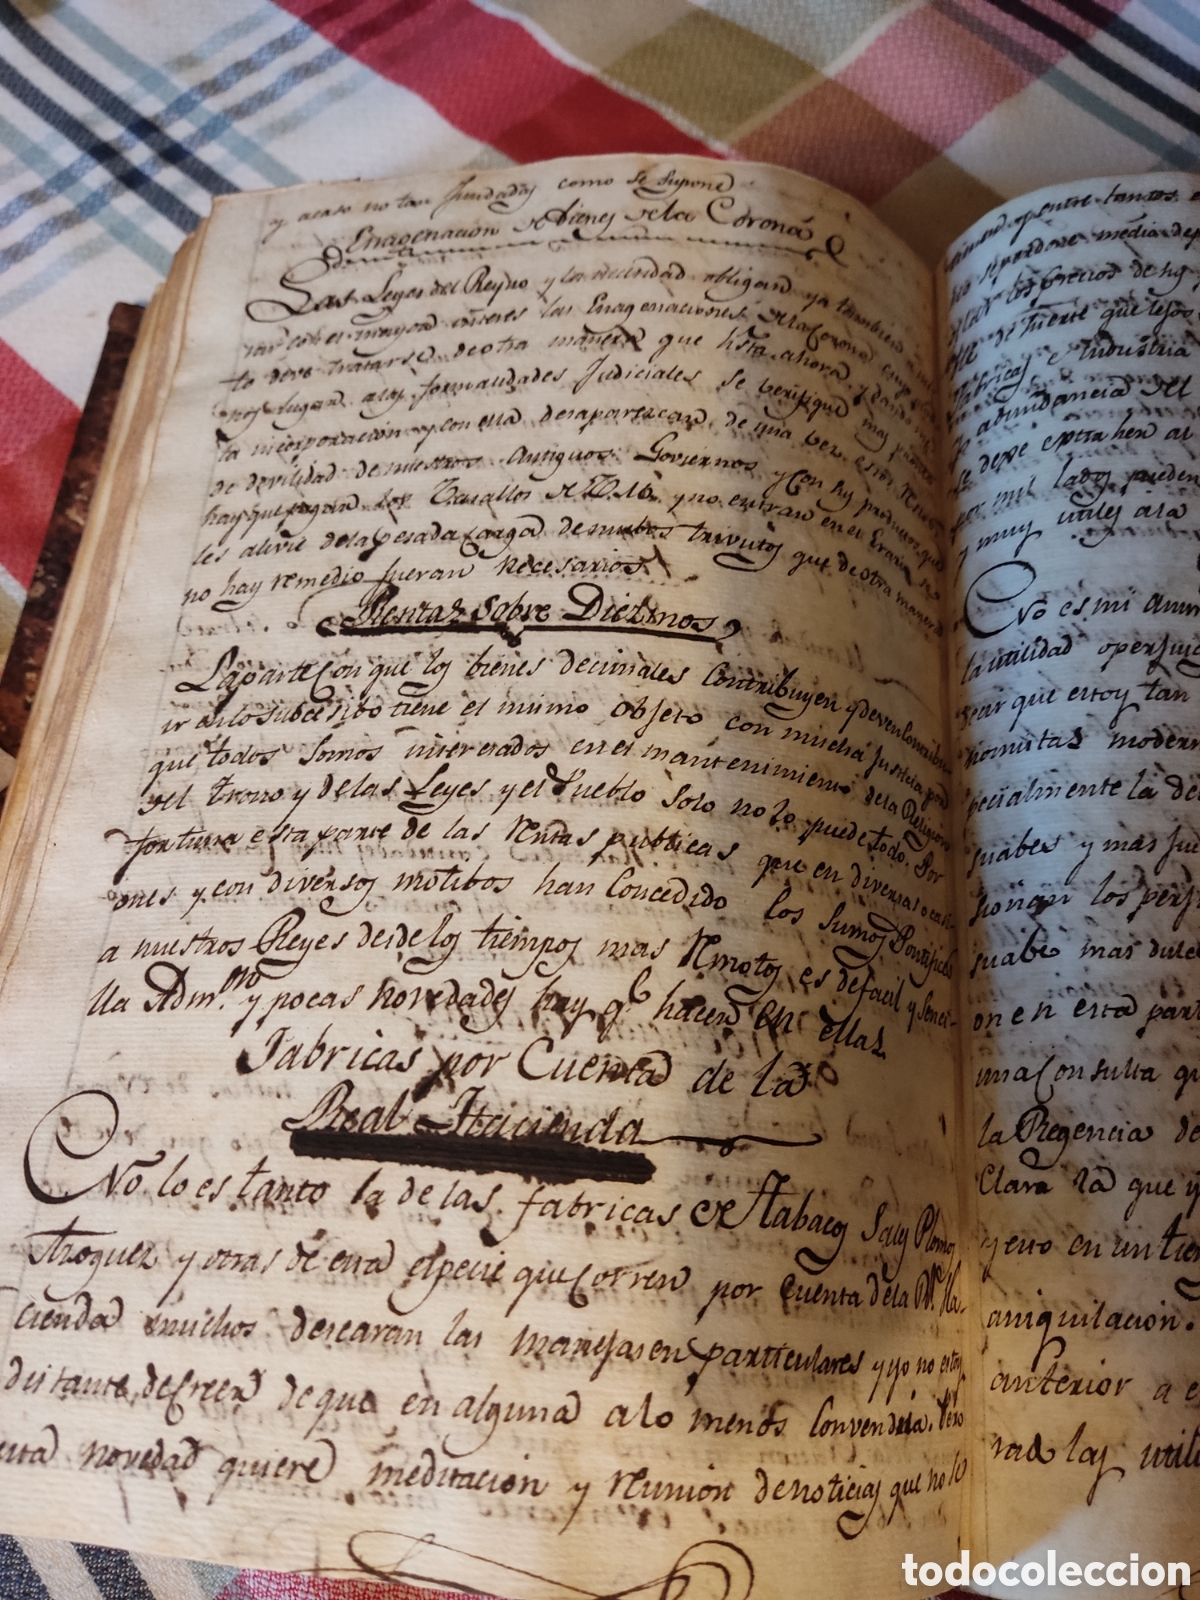 y acaso no tan fundadas como se supone
Enagenacion de bienes de la Corona
Las Leyes del Reyno y la necesidad obligan ya tambien a mi
rar con el mayor interes las Enagenaciones de la Corona
to deve tratarse de otra manera que hasta ahora, y dando me
nos lugar a las formalidades Judiciales se verifique mas pronta
la incorporacion y con ella desaparezcan de una vez estos
de devilidad de nuestros antiguos Goviernos y con
hay que pagan los Vasallos de V.M. y no entran en el Erario se
les alivie de la pesada carga de nuebos trivutos que de otra manera
no hay remedio fueran necesarios.
Rentas sobre Diezmos
La parte con que los bienes decimales contribuyen y deven contribu
ir en lo subcesibo tiene el mismo objeto con mucha justicia por
que todos somos interesados en el mantenimiento de la Religion
y el Trono y de las Leyes y el Pueblo solo no lo puede todo. Por
fortuna esta parte de las Rentas publicas que en diversas ocasi
ones y con diversos motibos han concedido los Sumos Pontifices
a nuestros Reyes desde los tiempos mas Remotos es de facil y senci-
lla Adm.on y pocas novedades hay q.e hacer en ellas
Fabricas por Cuenta de la
Real Hacienda
No lo es tanto la de las fabricas de Tabacos Sales Plomos
Azogues y otras de esta especie que corren por cuenta de la R.l Ha-
cienda muchos desearan las manejasen particulares y yo no estoy
distante de creer de que en alguna a lo menos convendria. Pero
esta novedad quiere meditacion y reunion de noticias que no lo
se pardone media
los precios de
de suerte que lejos
Fabricas e Industria
la abundancia del
se deve extraher al
por mil lados pueden
y muy utiles a la
No es mi anim
la utilidad o perjuic
sear que estoy tan
nomistas modern
pecialmente la de
suabes y mas jus
suabe mas dulce
on en esta part
una Consulta qu
la Regencia de
Clara la que y
y esto en un tie
aniquilacion.
anterior a e
rar las utili
todocoleccion